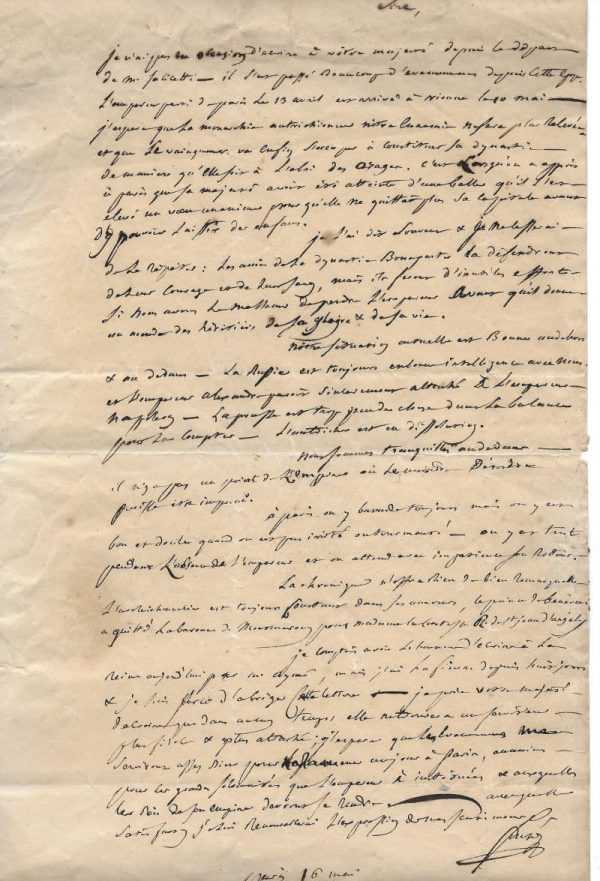 Sire,
je n'ai pas eu occasion d'ecrire à votre majesté depuis le départ
de mr Salicetti — il s'est passé Beaucoup d'evenemens depuis cette
L'empereur parti de paris Le 13 avril est arrivé à vienne le 10 mai —
j'espere que La monarchie autrichienne notre Ennemie ne sera plus Relevée
et que Le vainqueur va enfin s'occuper à constituer sa dynastie
de maniere qu'elle soit à L'abri des orages. c'est Lorsqu'on a appris
à paris que sa majesté avait été atteinte d'une balle qu'il s'est
elevé un vœu unanime pour qu'elle ne quittat plus sa capitale avant
d'y pouvoir Laisser des enfans.
je L'ai dit souvent & je ne cesserai
de Le Répéter: Les amis de La dynastie Bonaparte La défendront
de Leur Courage et de Leur sang, mais ils feront d'inutiles efforts
si nous avons Le malheur de perdre L'empereur avant qu'il donne
au monde des héritiers de sa gloire & de sa vie.
Notre situation actuelle est Bonne au dehors
& au dedans — La Russie est toujours en bonne intelligence avec nous
et L'empereur alexandre parait sincerement attaché à L'empereur
Napoléon — La prusse est trop peu de chose dans La balance
pour La Compter — L'autriche est en dissolution.
nous sommes tranquilles au dedans —
il n'y a pas un point de L'Empire où Le moindre Désordre
puisse etre impuni.
à paris on y bavarde toujours mais on y est
bon et docile quand on n'est pas irrité ou tourmenté — on y est
pendant L'absence de L'empereur et on attend avec impatience son Retour.
La chronique n'offre Rien de bien Remarquable
L'archichancelier est toujours Constant dans ses amours, le prince de Bénévent
a quitté La baronne de pour madame La Comtesse R. de st jean d'angely
je comptais avoir L'honneur d'ecrire à La
Reine aujourd'hui mais j'ai La fievre depuis huit jours
& je suis forcé d'abréger Cette Lettre — je prie votre majesté
de croire que dans aucun temps elle ne trouvera un serviteur
plus fidele & plus attaché; j'espere que Les evenemens
assez Bien pour L'amener un jour à paris,
pour Les grandes solemnités que L'empereur à instituées & auxquelles
Les Rois de son empire devront se Rendre — auxquelles
L'expression de mes sentimens
paris 16 mai